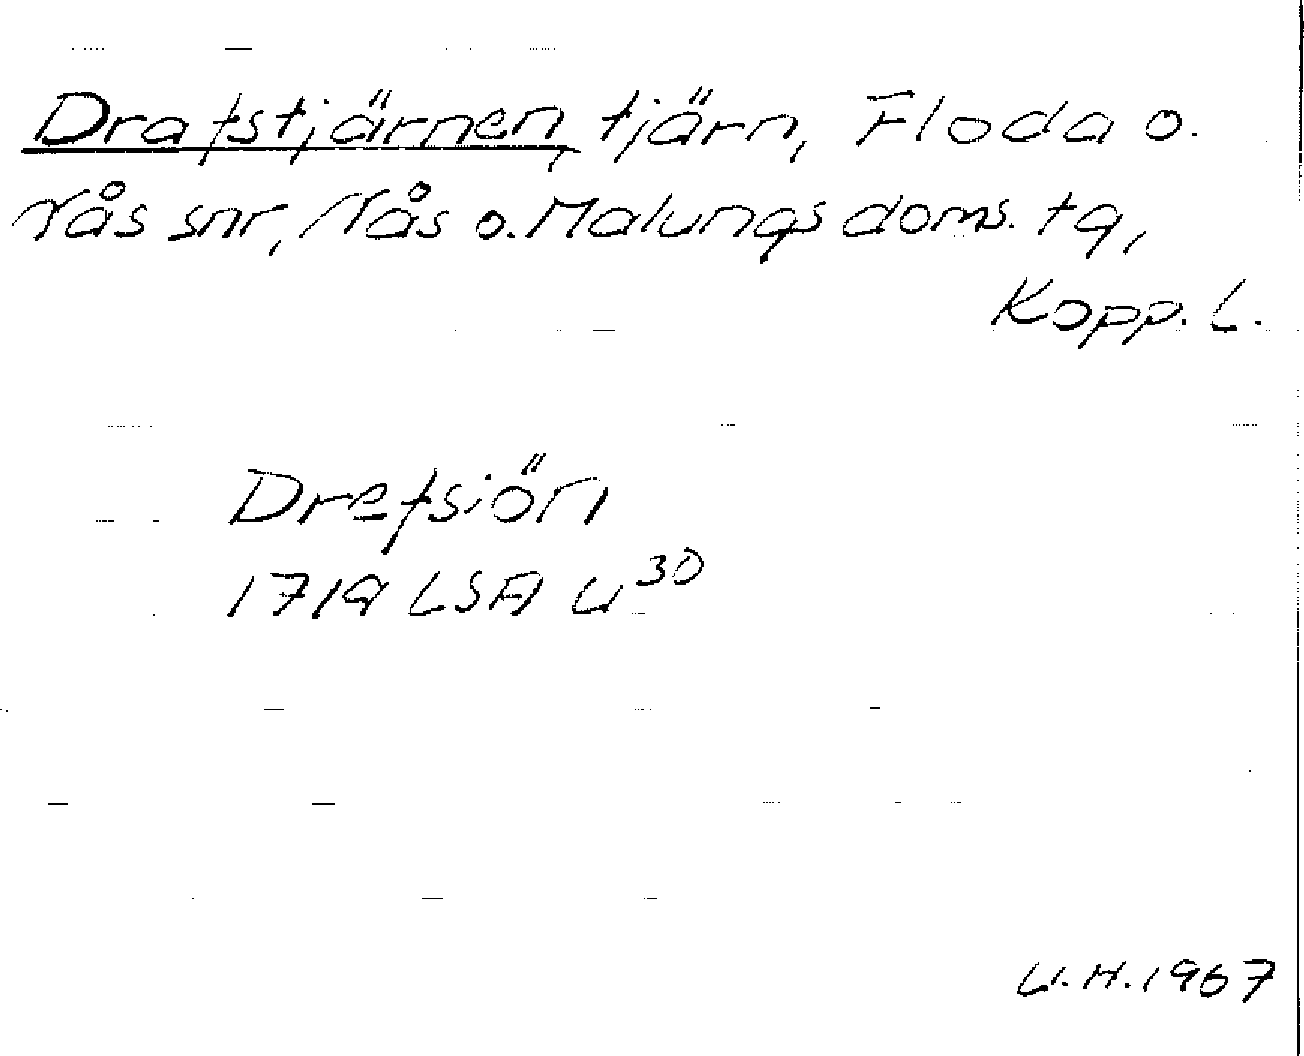 Drafstjärnen, tjärn, Floda o.
Nås snr, Nås o. Malungs doms. tg,
Kopp. L.
Drefsiön
1719 LSA U³⁰
U.H. 1967